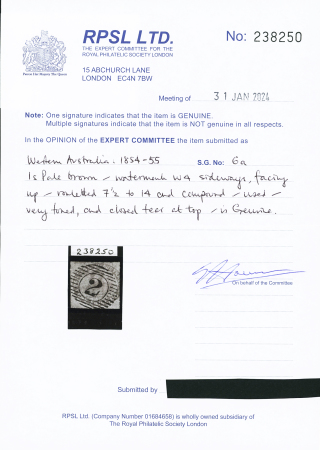 RPSL LTD.
THE EXPERT COMMITTEE FOR THE
ROYAL PHILATELIC SOCIETY LONDON
No: 238250
15 ABCHURCH LANE
LONDON EC4N 7BW
Meeting of 31 JAN 2024
Note: One signature indicates that the item is GENUINE.
Multiple signatures indicate that the item is NOT genuine in all respects.
In the OPINION of the EXPERT COMMITTEE the item submitted as
Western Australia. 1854-55 S.G. No: 6a
1s Pale brown - watermark W4 sideways, facing
up - rouletted 7½ to 14 and compound - used -
very toned, and closed tear at top - is Genuine.
238250
2
On behalf of the Committee
Submitted by
RPSL Ltd. (Company Number 01684658) is wholly owned subsidiary of
The Royal Philatelic Society London